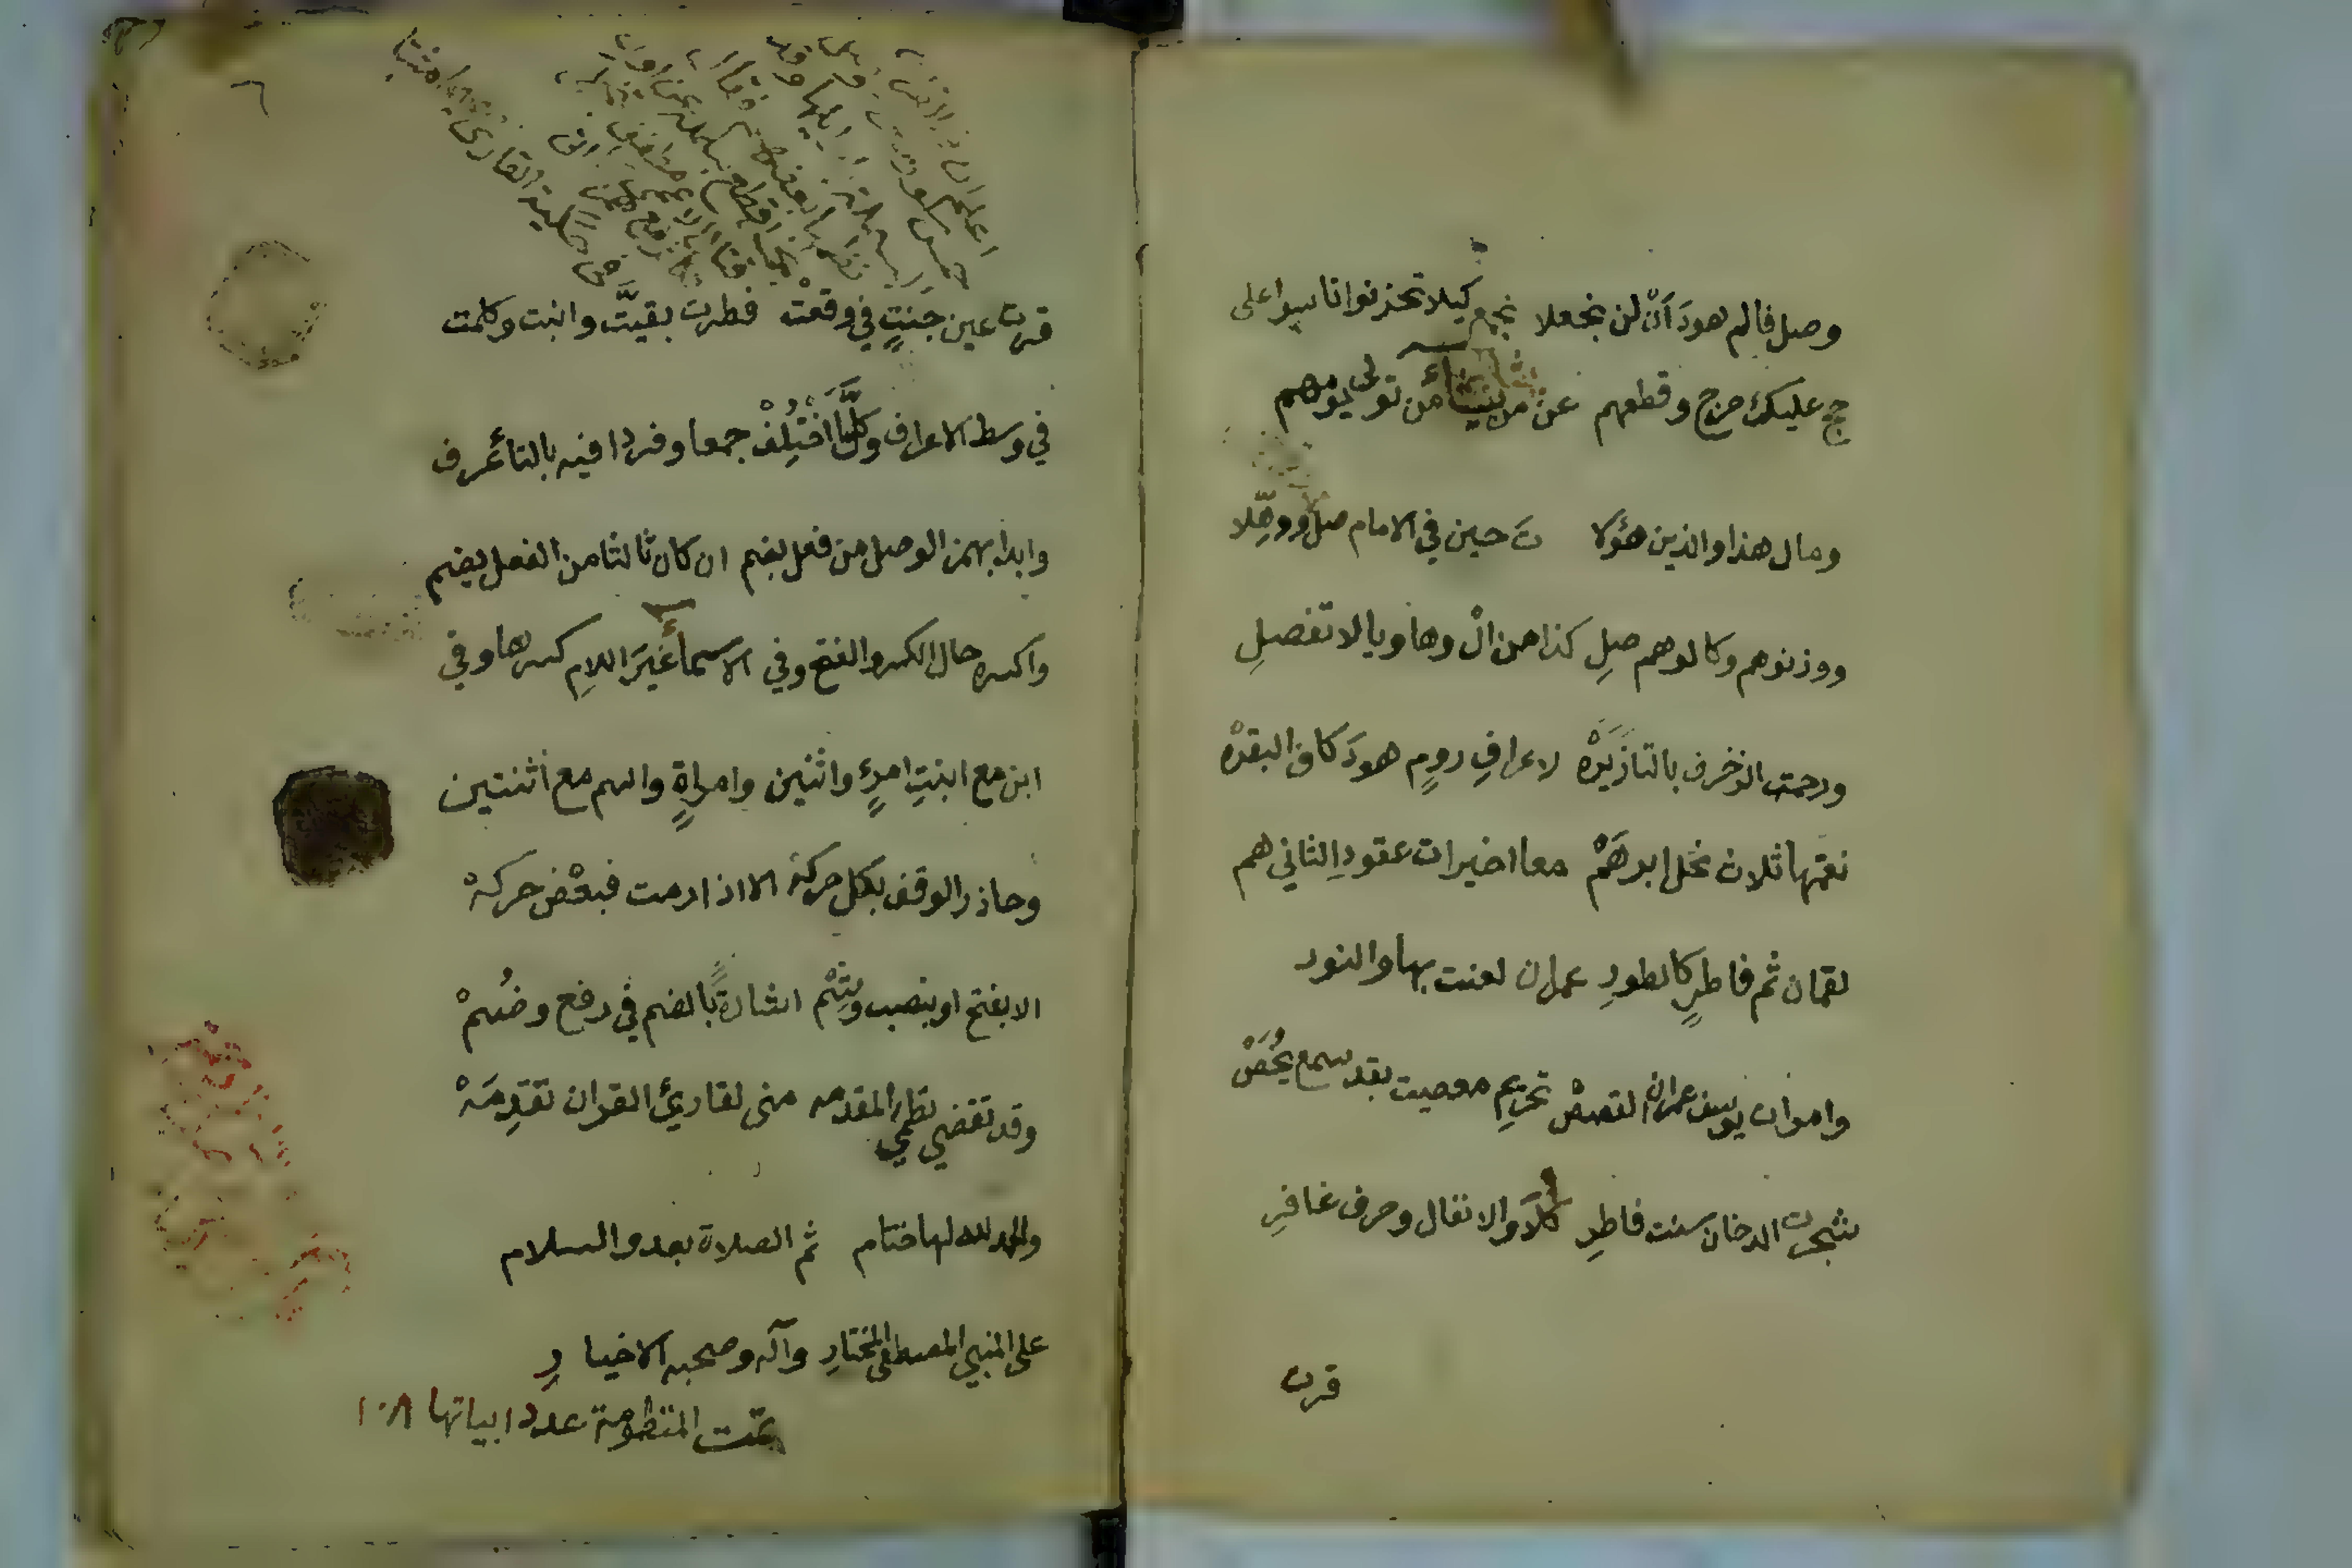 وصل فالم هودَ أنْ لن نجعلا نجمع كيلا تحزنوا تاسوا على
حج عليك حرج وقطعهم عن من يشاء من تولى يوم هم
ومال هذا والذين هؤلا تَ حين في الامام صل ووهّلا
ووزنوهم وكالوهم صلِ كذا من الْ وها ويا لا تفصلِ
ورحمت الزخرف بالتا زَبَرَهْ لاعرافِ رومٍ هودَ كاف البقرهْ
نعمتها ثلاث نحل ابرهَمْ معا اخيرات عقودِ الثاني هم
لقمان ثم فاطرٍ كالطورِ عمران لعنت بها والنور
وامرات يوسف عمران القصصْ تحريمِ معصيت بقد سمع يُخَصْ
شجرت الدخان سنت فاطرِ كلاً والانفال وحرف غافرِ
قرت
قرت عين جَنتٍ في وقعتْ فطرت بقيّت وابنت وكلمت
في وسط الاعراف وكلّ مَا اخْتُلِفْ جمعا وفردا فيه بالتاءِ عُرف
وابدا بهمز الوصل من فعل بضم ان كان ثالثا من الفعل يضم
واكسره حال الكسر والفتح وفي الاسماءِ غيرَ اللامِ كسرها وفي
ابن مع ابنتِ امرئٍ واثنين وامراةٍ واسم مع اثنتين
وحاذر الوقف بكل حركهْ الا اذا رمت فبعْضُ حركهْ
الا بفتح او بنصب وَاشِمْ اشارةً بالضم في رفع وضُمْ
وقد تقضي نظمي المقدمه مني لقارئ القران تقدِمَهْ
والحمد لله لها ختام ثم الصلاة بعد والسلام
على النبي المصطفى المختارِ وآله وصحبه الاخيارِ
تمت المنظومة عدد ابياتها ١٠٨